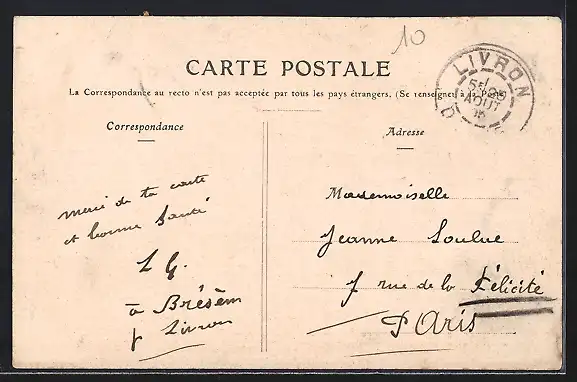 10
CARTE POSTALE
La Correspondance au recto n'est pas acceptée par tous les pays étrangers. (Se renseigner à la Poste
LIVRON
AOUT
Correspondance
Adresse
merci de ta carte
et bonne Santé
L G.
à Brésèm
p Livron
Mademoiselle
Jeanne Loulue
7 rue de la Félicité
PAris